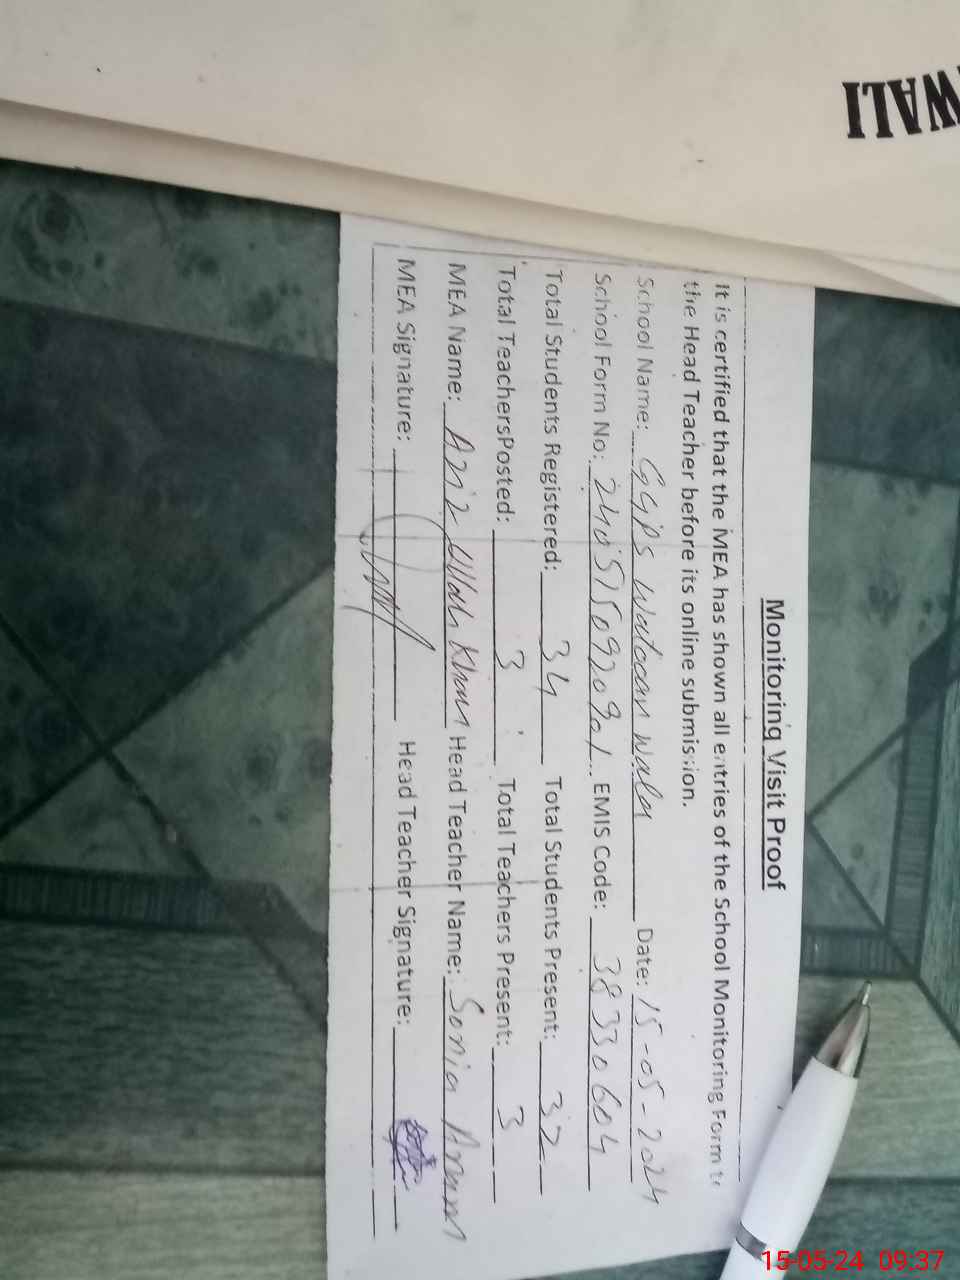 WALI
Monitoring Visit Proof
It is certified that the MEA has shown all entries of the School Monitoring Form to
the Head Teacher before its online submission.
School Name: GGPS Watocan Wala Date: 15-05-2024
School Form No: EMIS Code: 38330604
Total Students Registered: 34 Total Students Present: 32
Total TeachersPosted: 3 Total Teachers Present: 3
MEA Name: Aziz Ullah Khan Head Teacher Name: Sonia
MEA Signature: Head Teacher Signature:
15-05-24 09:37